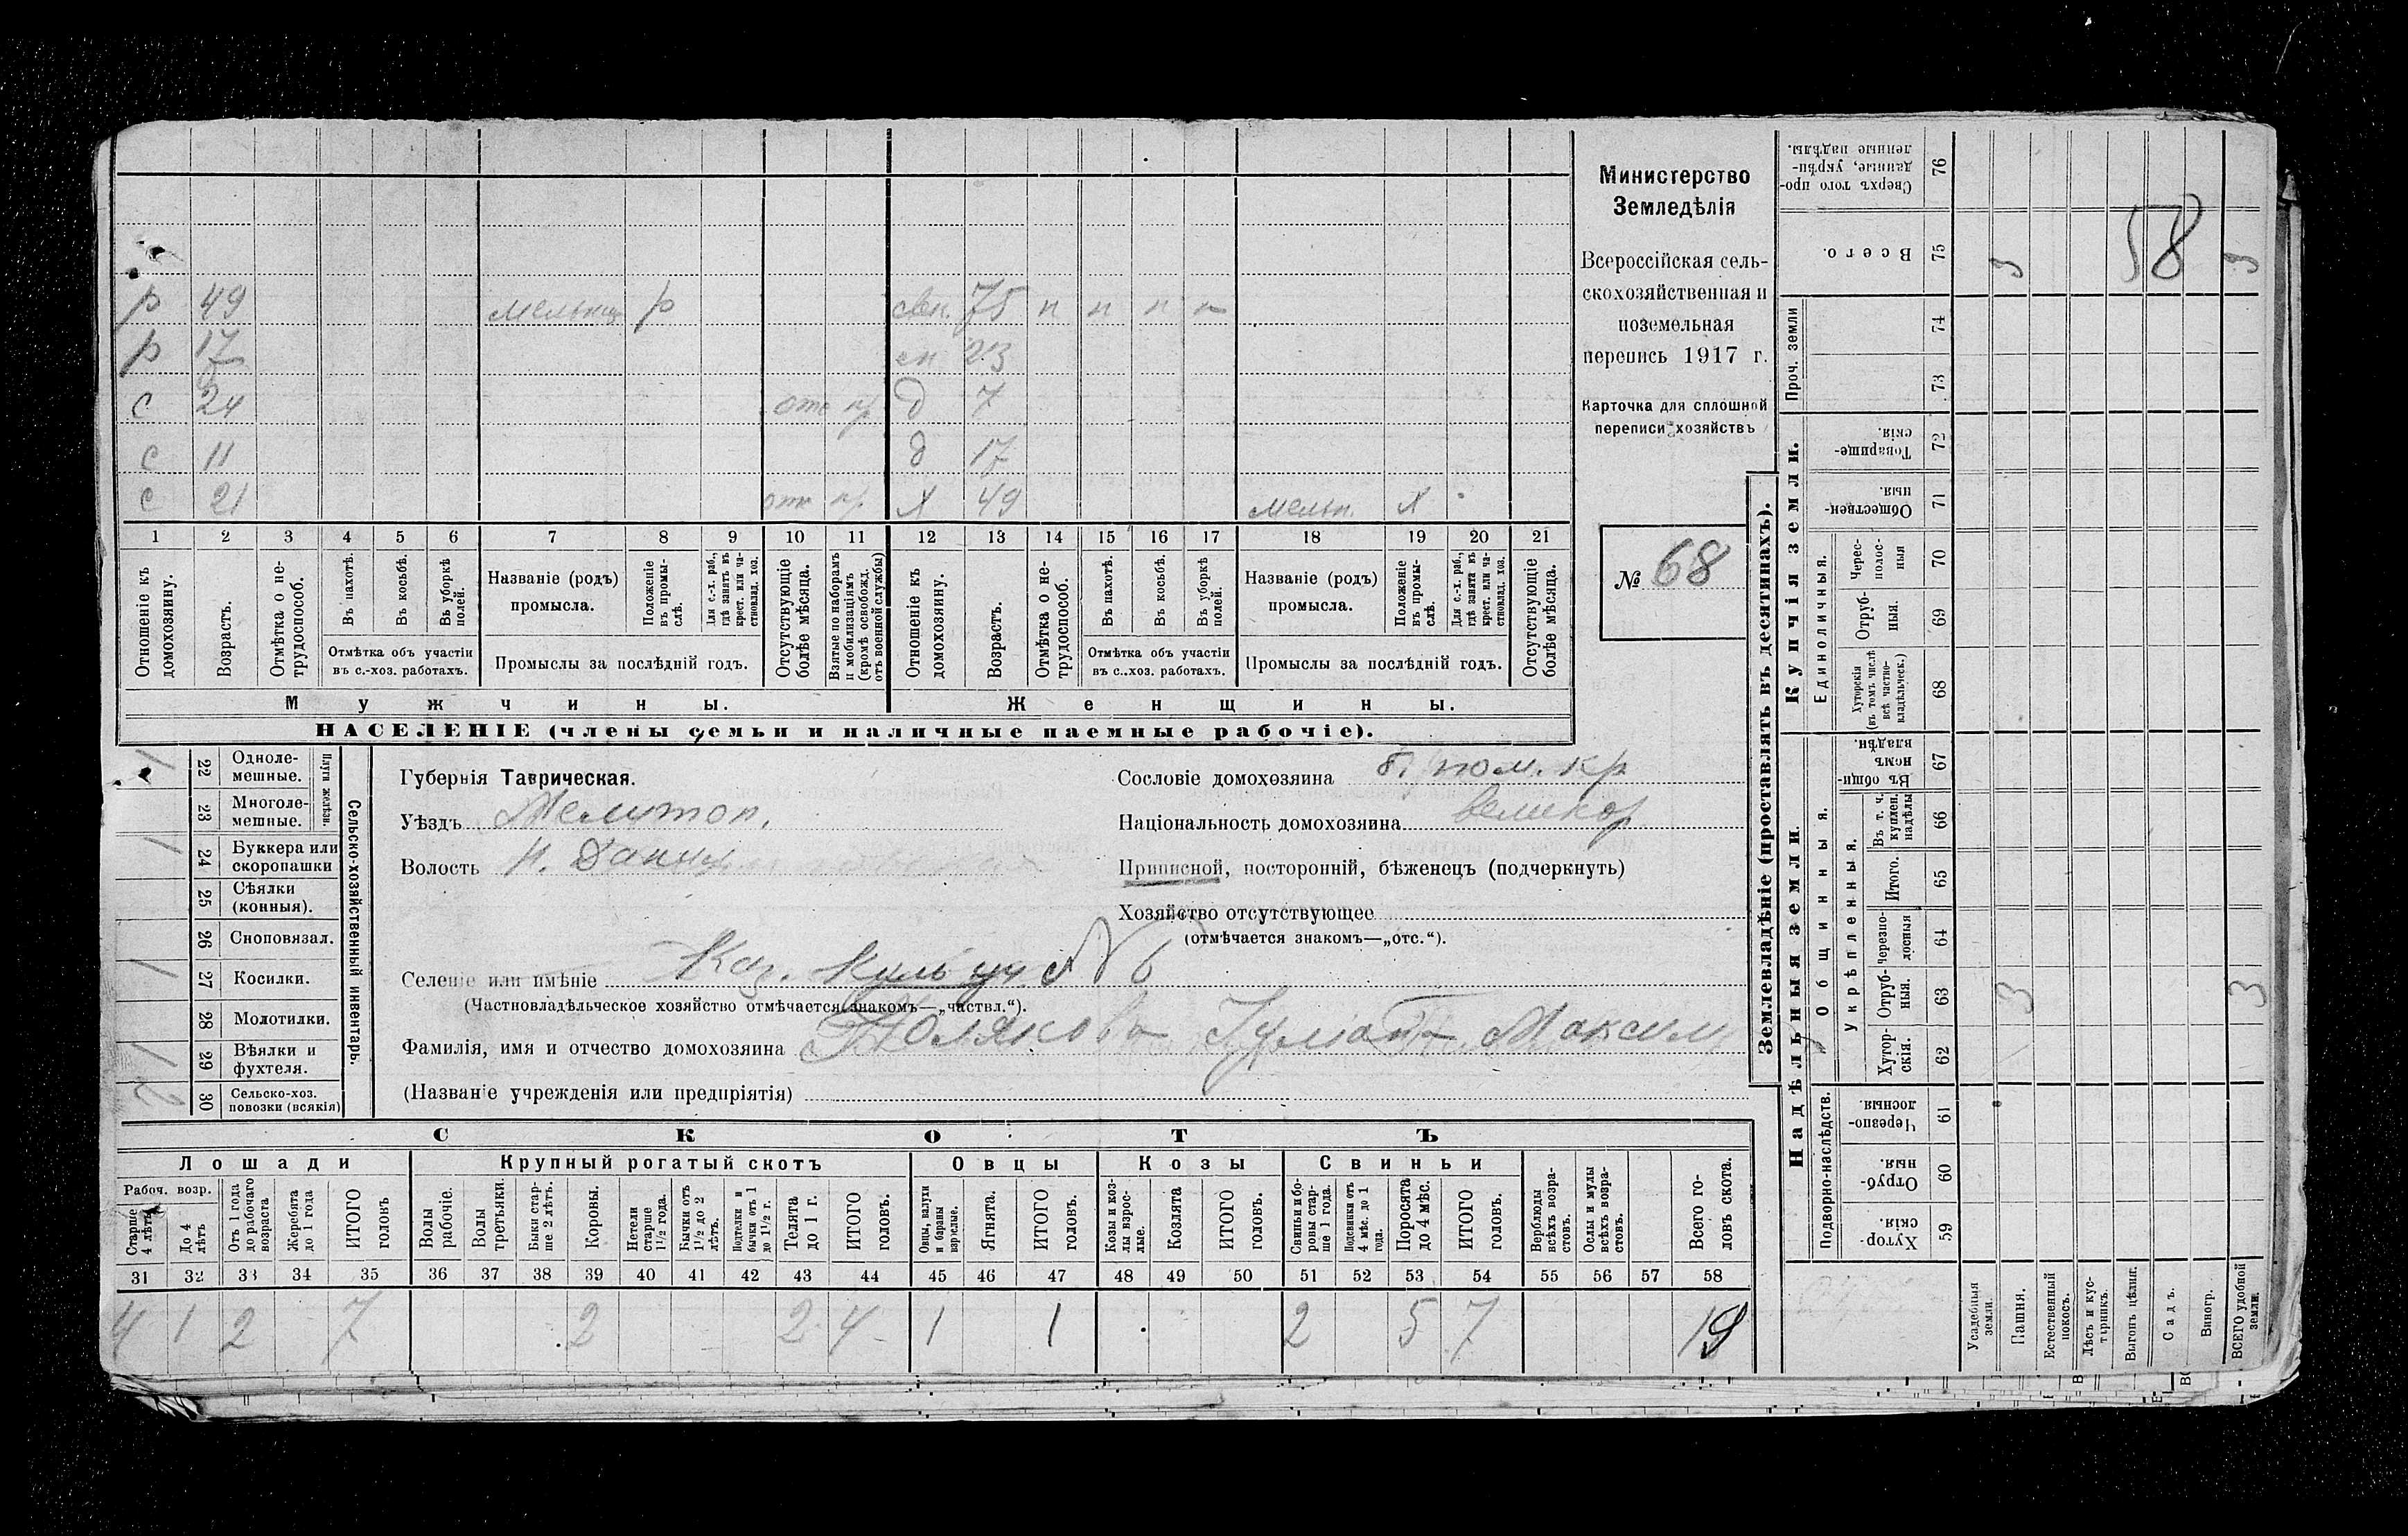 Министерство
Земледѣлія
Всероссійская сель-
скохозяйственная и
поземельная
перепись 1917 г.
Карточка для сплошной
переписи хозяйствъ
№ 68
58
р 49 мельниц р свек. 75 п п п п
р 17 сн 23
с 24 отс пр д 7
с 11 д 17
с 21 отс пр. Х 49 мельн. Х
1 2 3 4 5 6 7 8 9 10 11 12 13 14 15 16 17 18 19 20 21
Отношеніе къ домохозяину.
Возрастъ.
Отмѣтка о не-трудоспособ.
Въ пахотѣ.
Въ косьбѣ.
Въ уборкѣ полей.
Отмѣтка объ участіи въ с.-хоз. работахъ.
Названіе (родъ) промысла.
Положеніе въ промы-слѣ.
Для с.-х. раб., гдѣ занятъ въ крест. или ча-стновлад. хоз.
Промыслы за послѣдній годъ.
Отсутствующіе болѣе мѣсяца.
Взятые по наборамъ и мобилизаціямъ (кромѣ освобожд. отъ военной службы)
Отношеніе къ домохозяину.
Возрастъ.
Отмѣтка о не-трудоспособ.
Въ пахотѣ.
Въ косьбѣ.
Въ уборкѣ полей.
Отмѣтка объ участіи въ с..хоз. работахъ.
Названіе (родъ) промысла.
Положеніе въ промы-слѣ.
Для с.-х. раб., гдѣ занята въ крест. или ча-стновлад. хоз.
Промыслы за послѣдній годъ.
Отсутствующіе болѣе мѣсяца.
Мужчины. Женщины.
НАСЕЛЕНІЕ (члены семьи и наличные наемные рабочіе).
Сельско-хозяйственный инвентарь.
Плуги желѣзн.
1 22 Одноле-мешные.
23 Многоле-мешные.
1 24 Буккера или скоропашки
25 Сѣялки (конныя).
26 Сноповязал.
1 27 Косилки.
28 Молотилки.
1 29 Вѣялки и фухтеля.
2 30 Сельско-хоз. повозки (всякія)
Губернія Таврическая.
Уѣздъ Мелитоп.
Волость Н. Данил
Сословіе домохозяина б. пом. кр
Національность домохозяина великор
Приписной, посторонній, бѣженецъ (подчеркнуть)
Хозяйство отсутствующее
(отмѣчается знакомъ—„отс.“).
Селеніе или имѣніе Каз. уч № 6
(Частновладѣльческое хозяйство отмѣчается знакомъ—„частвл.“).
Фамилія, имя и отчество домохозяина Полякова Максим
(Названіе учрежденія или предпріятія)
СКОТЪ
Лошади Крупный рогатый скотъ Овцы Козы Свиньи
Рабоч. возр.
Старше 4 лѣтъ
До 4 лѣтъ
Отъ 1 года до рабочаго возраста
Жеребята до 1 года
ИТОГО головъ
Волы рабочіе.
Волы третьяки.
Быки стар-ше 2 лѣтъ.
Коровы.
Нетели старше 1 1/2 года.
Бычки отъ 1 1/2 до 2 лѣтъ.
Подтелки и бычки отъ 1 до 1 1/2 г.
Телята до 1 г.
ИТОГО головъ.
Овцы, валухи и бараны взрослые.
Ягнята.
ИТОГО головъ.
Козы и коз-лы взрос-лые.
Козлята
ИТОГО головъ.
Свиньи и бо-ровы стар-ше 1 года.
Подсвинки отъ 4 мѣс. до 1 года.
Поросята до 4 мѣс.
ИТОГО головъ.
Верблюды всѣхъ возра-стовъ.
Ослы и мулы всѣхъ возра-стовъ.
Всего го-ловъ скота.
31 32 33 34 35 36 37 38 39 40 41 42 43 44 45 46 47 48 49 50 51 52 53 54 55 56 57 58
4 1 2 7 2 2 4 1 1 2 5 7 19
Землевладѣніе (проставлять въ десятинахъ).
Купчія земли.
Надѣльныя земли.
Сверхъ того про-данные, укрѣп-ленные надѣлы. 76
Всего. 75 3 3
Проч. земли 74 73
Товарище-скія. 72
Обществен-ныя. 71
Единоличныя.
Черес-полос-ныя 70
Отруб-ныя. 69
Хуторскія (въ томъ числѣ всѣ частно-владѣльческ.) 68
Въ общин-номъ владѣн. 67
Общинныя.
Укрѣпленныя.
Въ т. ч. куплен. надѣлы 66
Итого. 65
Черезпо-лосныя 64
Отруб-ныя. 63 3 3
Хутор-скія. 62
Подворно-наслѣдств.
Черезпо-лосныя 61
Отруб-ныя. 60
Хутор-скія. 59
Усадебныя земли.
Пашня.
Естественный покосъ.
Лѣсъ и кус-тарникъ.
Выгонъ цѣлин.
Садъ.
Виногр.
ВСЕГО удобной земли.